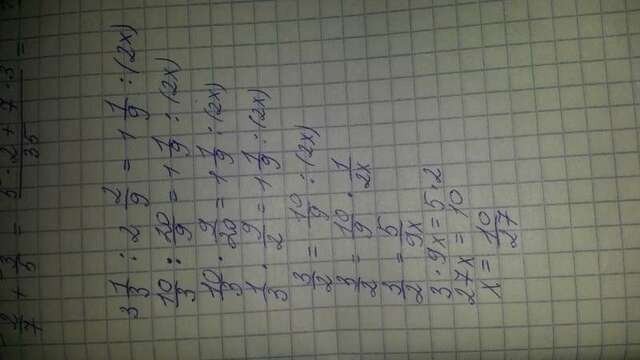 2/7 + 3/5 = (5·2+7·3)/35 =
3 1/3 : 2 2/9 = 1 1/9 : (2x)
10/3 : 20/9 = 1 1/9 : (2x)
10/3 · 9/20 = 1 1/9 : (2x)
1/3 · 9/2 = 1 1/9 : (2x)
3/2 = 10/9 : (2x)
3/2 = 10/9 · 1/2x
3/2 = 5/9x
3·9x = 5·2
27x = 10
x = 10/27